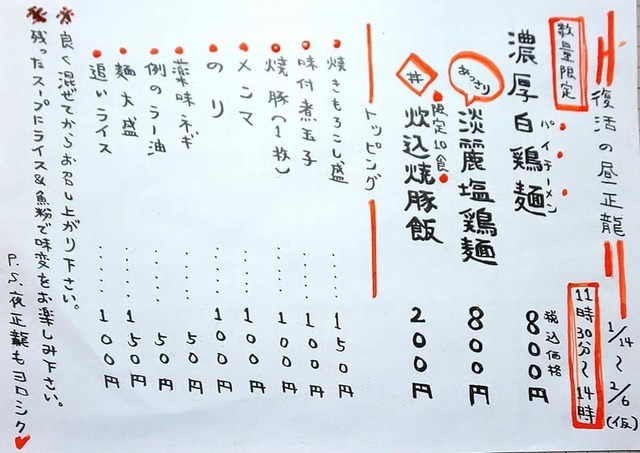 復活の昼正龍
1/14〜2/6(仮)
11時30分〜14時
数量限定
濃厚白鶏麺
パイチーメン
税込価格
800円
あっさり
淡麗塩鶏麺
800円
限定10食
丼
炊込焼豚飯
200円
トッピング
焼きもろこし盛......150円
味付煮玉子......100円
焼豚(1枚)......100円
メンマ......100円
のり......100円
薬味ネギ......50円
例のラー油......50円
麺大盛......150円
追いライス......100円
※良く混ぜてからお召し上がり下さい。
※残ったスープにライス&魚粉で味変をお楽しみ下さい。
P.S.夜正龍もヨロシク♥